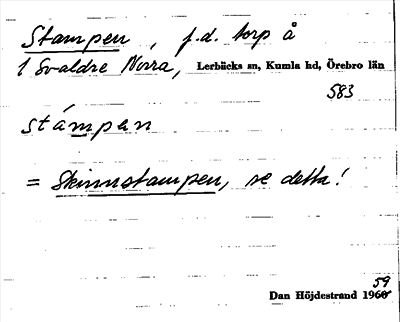 Stampen, f.d. torp å
1 Svaldre Norra, Lerbäcks sn, Kumla hd, Örebro län
583
stámpan
= Skinnstampen, se detta!
59
Dan Höjdestrand 1960